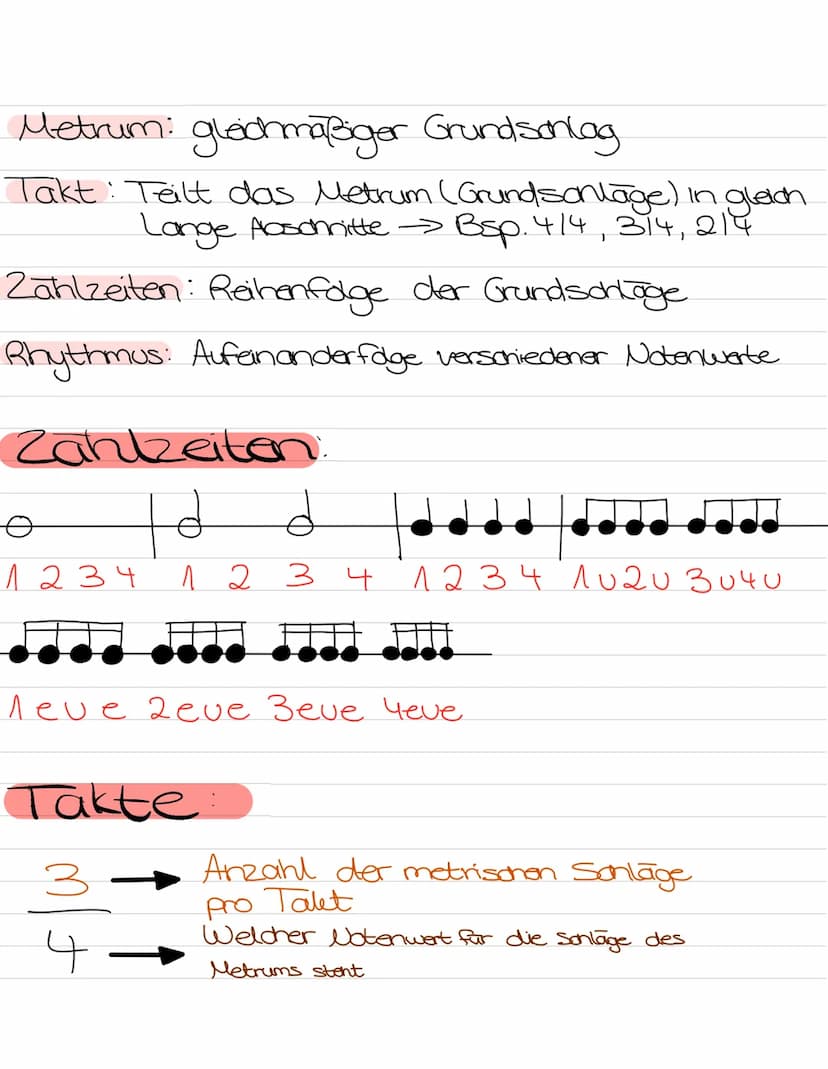 Metrum: gleichmäßiger Grundschlag
Takt: Teilt das Metrum (Grundschläge) in gleich
Lange Abschnitte → Bsp. 4/4, 3/4, 2/4
Zählzeiten: Reihenfolge der Grundschläge
Rhythmus: Aufeinanderfolge verschiedener Notenwerte
Zählzeiten:
1 2 3 4 1 2 3 4 1 2 3 4 1u2u 3u4u
1eue 2eue 3eue 4eue
Takte:
3 → Anzahl der metrischen Schläge
pro Takt
4 → Welcher Notenwert für die Schläge des
Metrums steht